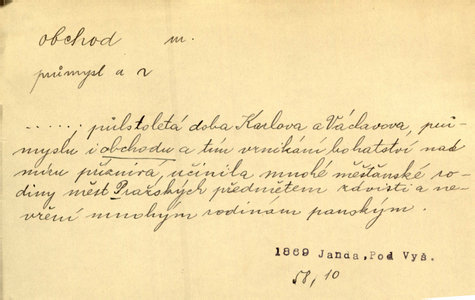 obchod m.
průmysl a ~
....., půlstoletá doba Karlova a Václavova, prů-
myslu i obchodu a tím vznikání bohatství nad
míru příznivá, učinila mnohé měšťanské ro-
diny měst Pražských předmětem závisti a ne-
vření mnohým rodinám panským.
1869 Janda, Pod Vyš.
58, 10